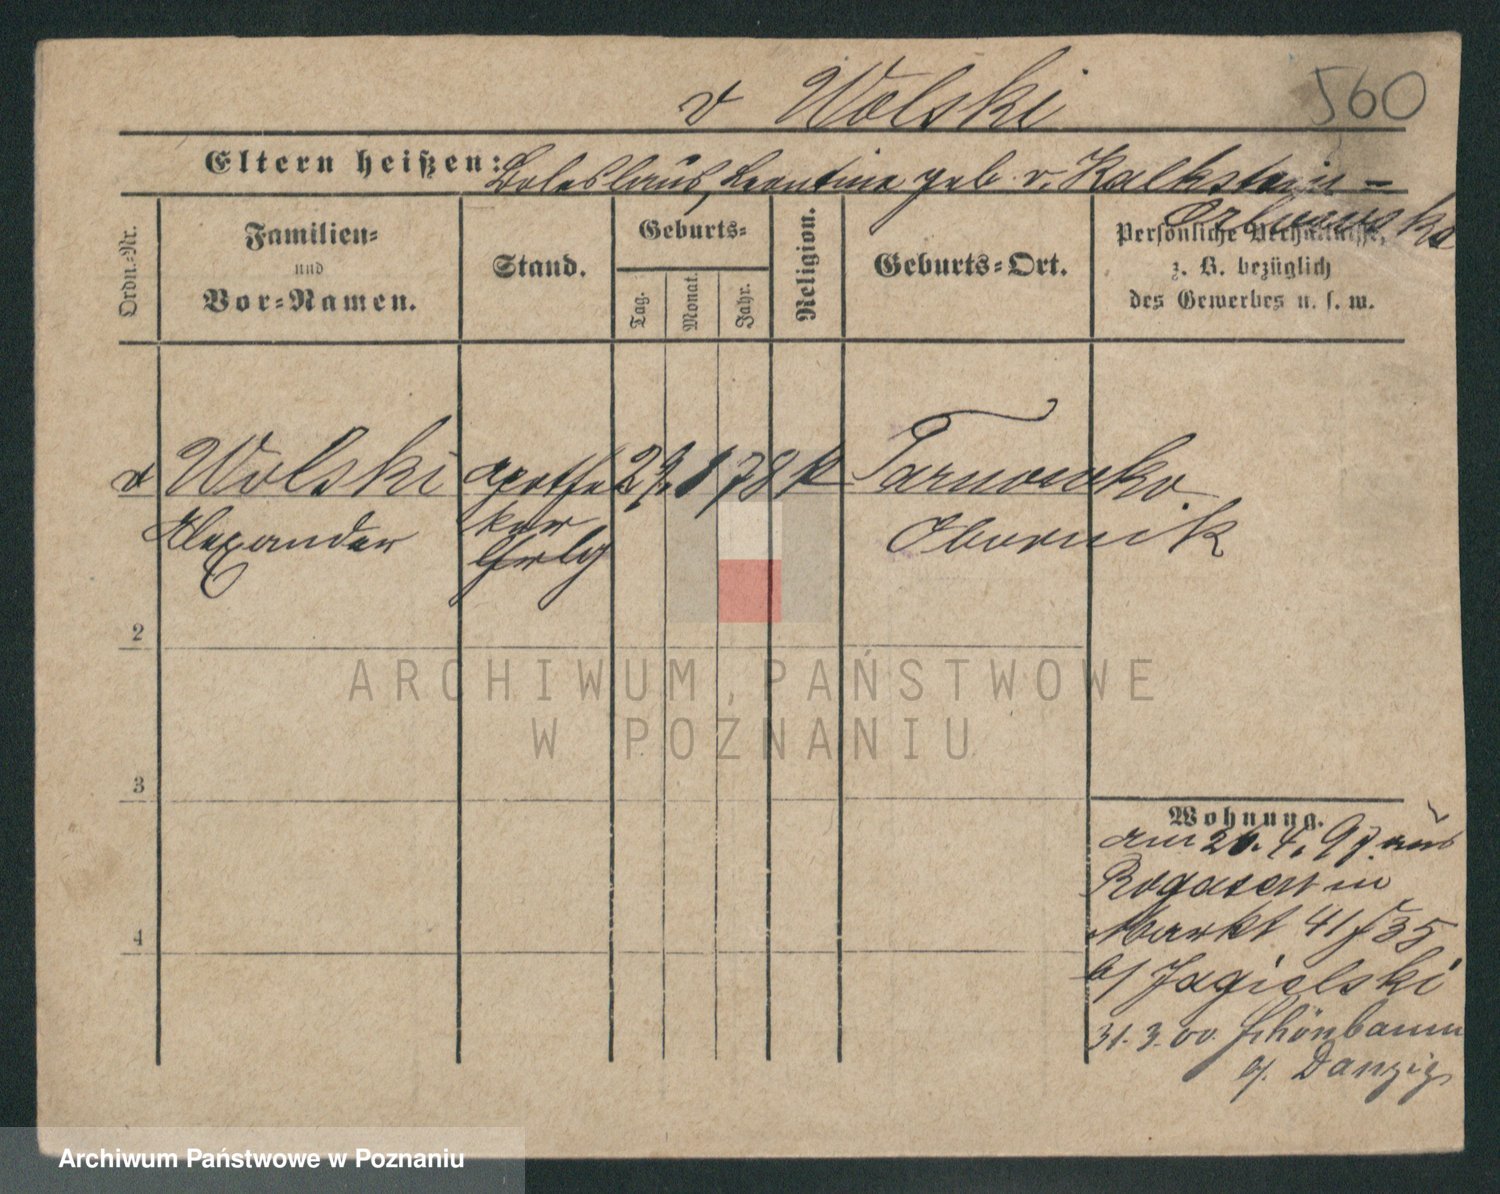 v Wolski
560
Eltern heißen: Boleslaus, Leontine geb. v. Kalkstein-
Orlowska
Ordn.-Nr.
Familien-
und
Vor-Namen.
Stand.
Geburts-
Tag.
Monat.
Jahr.
Religion.
Geburts-Ort.
Persönliche Verhältnisse,
z. B. bezüglich
des Gewerbes u. s. w.
v Wolski
Alexander
Apothe
ker
78
k
Tarnowko
Obornik
2
3
4
Wohnung.
am 26. 4. 97 aus
Rogasen in
Markt 41
b/ Jagielski
31. 3. 00. Schönbaum
b/. Danzig
ARCHIWUM PAŃSTWOWE
W POZNANIU
Archiwum Państwowe w Poznaniu